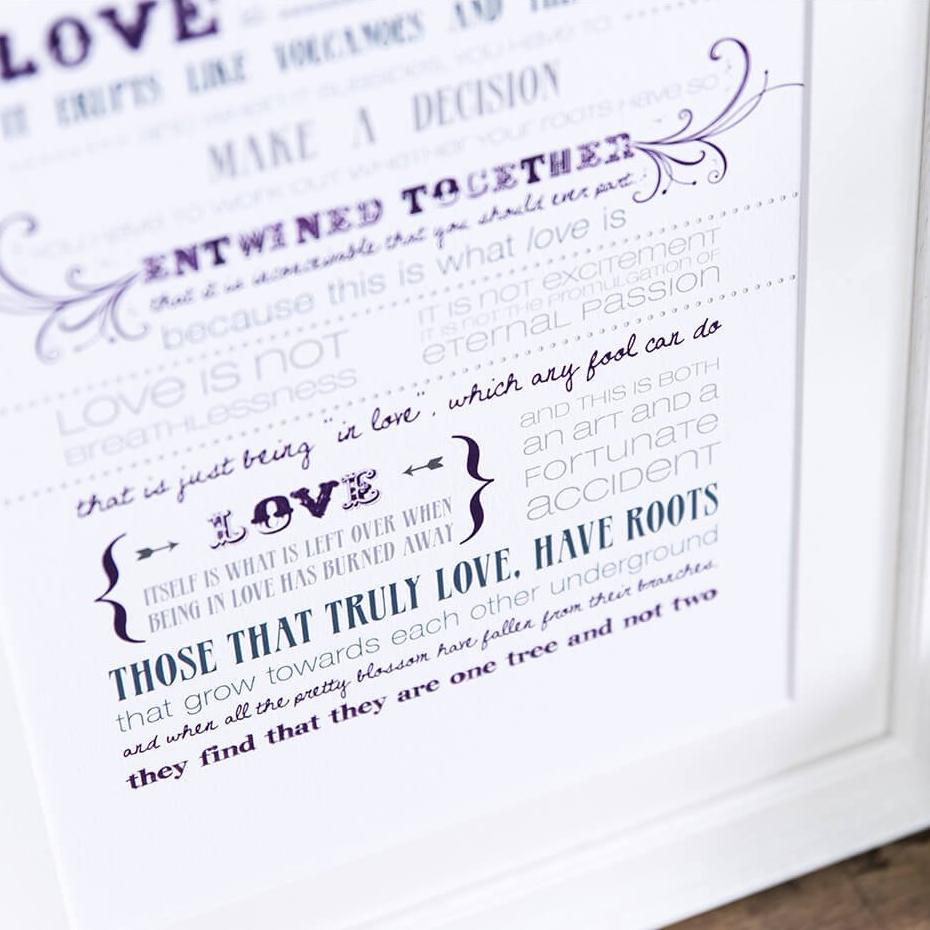 LOVE
IT ERUPTS LIKE VOLCANOES AND
and when it subsides, you have to
MAKE A DECISION
you have to work out whether your roots have so
ENTWINED TOGETHER
that it is inconceivable that you should ever part.
because this is what love is
LOVE IS NOT
BreaTHLessness
IT IS NOT excITemenT
IT IS NOT THE PromuLGaTION OF
eTernaL PassION
that is just being "in love", which any fool can do
LOVE
ITSELF IS WHAT IS LEFT OVER WHEN
BEING IN LOVE HAS BURNED AWAY
and THIS IS BOTH
an arT and a
FORTunaTe
accIDenT
THOSE THAT TRULY LOVE, HAVE ROOTS
that grow towards each other underground
and when all the pretty blossom have fallen from their branches,
they find that they are one tree and not two